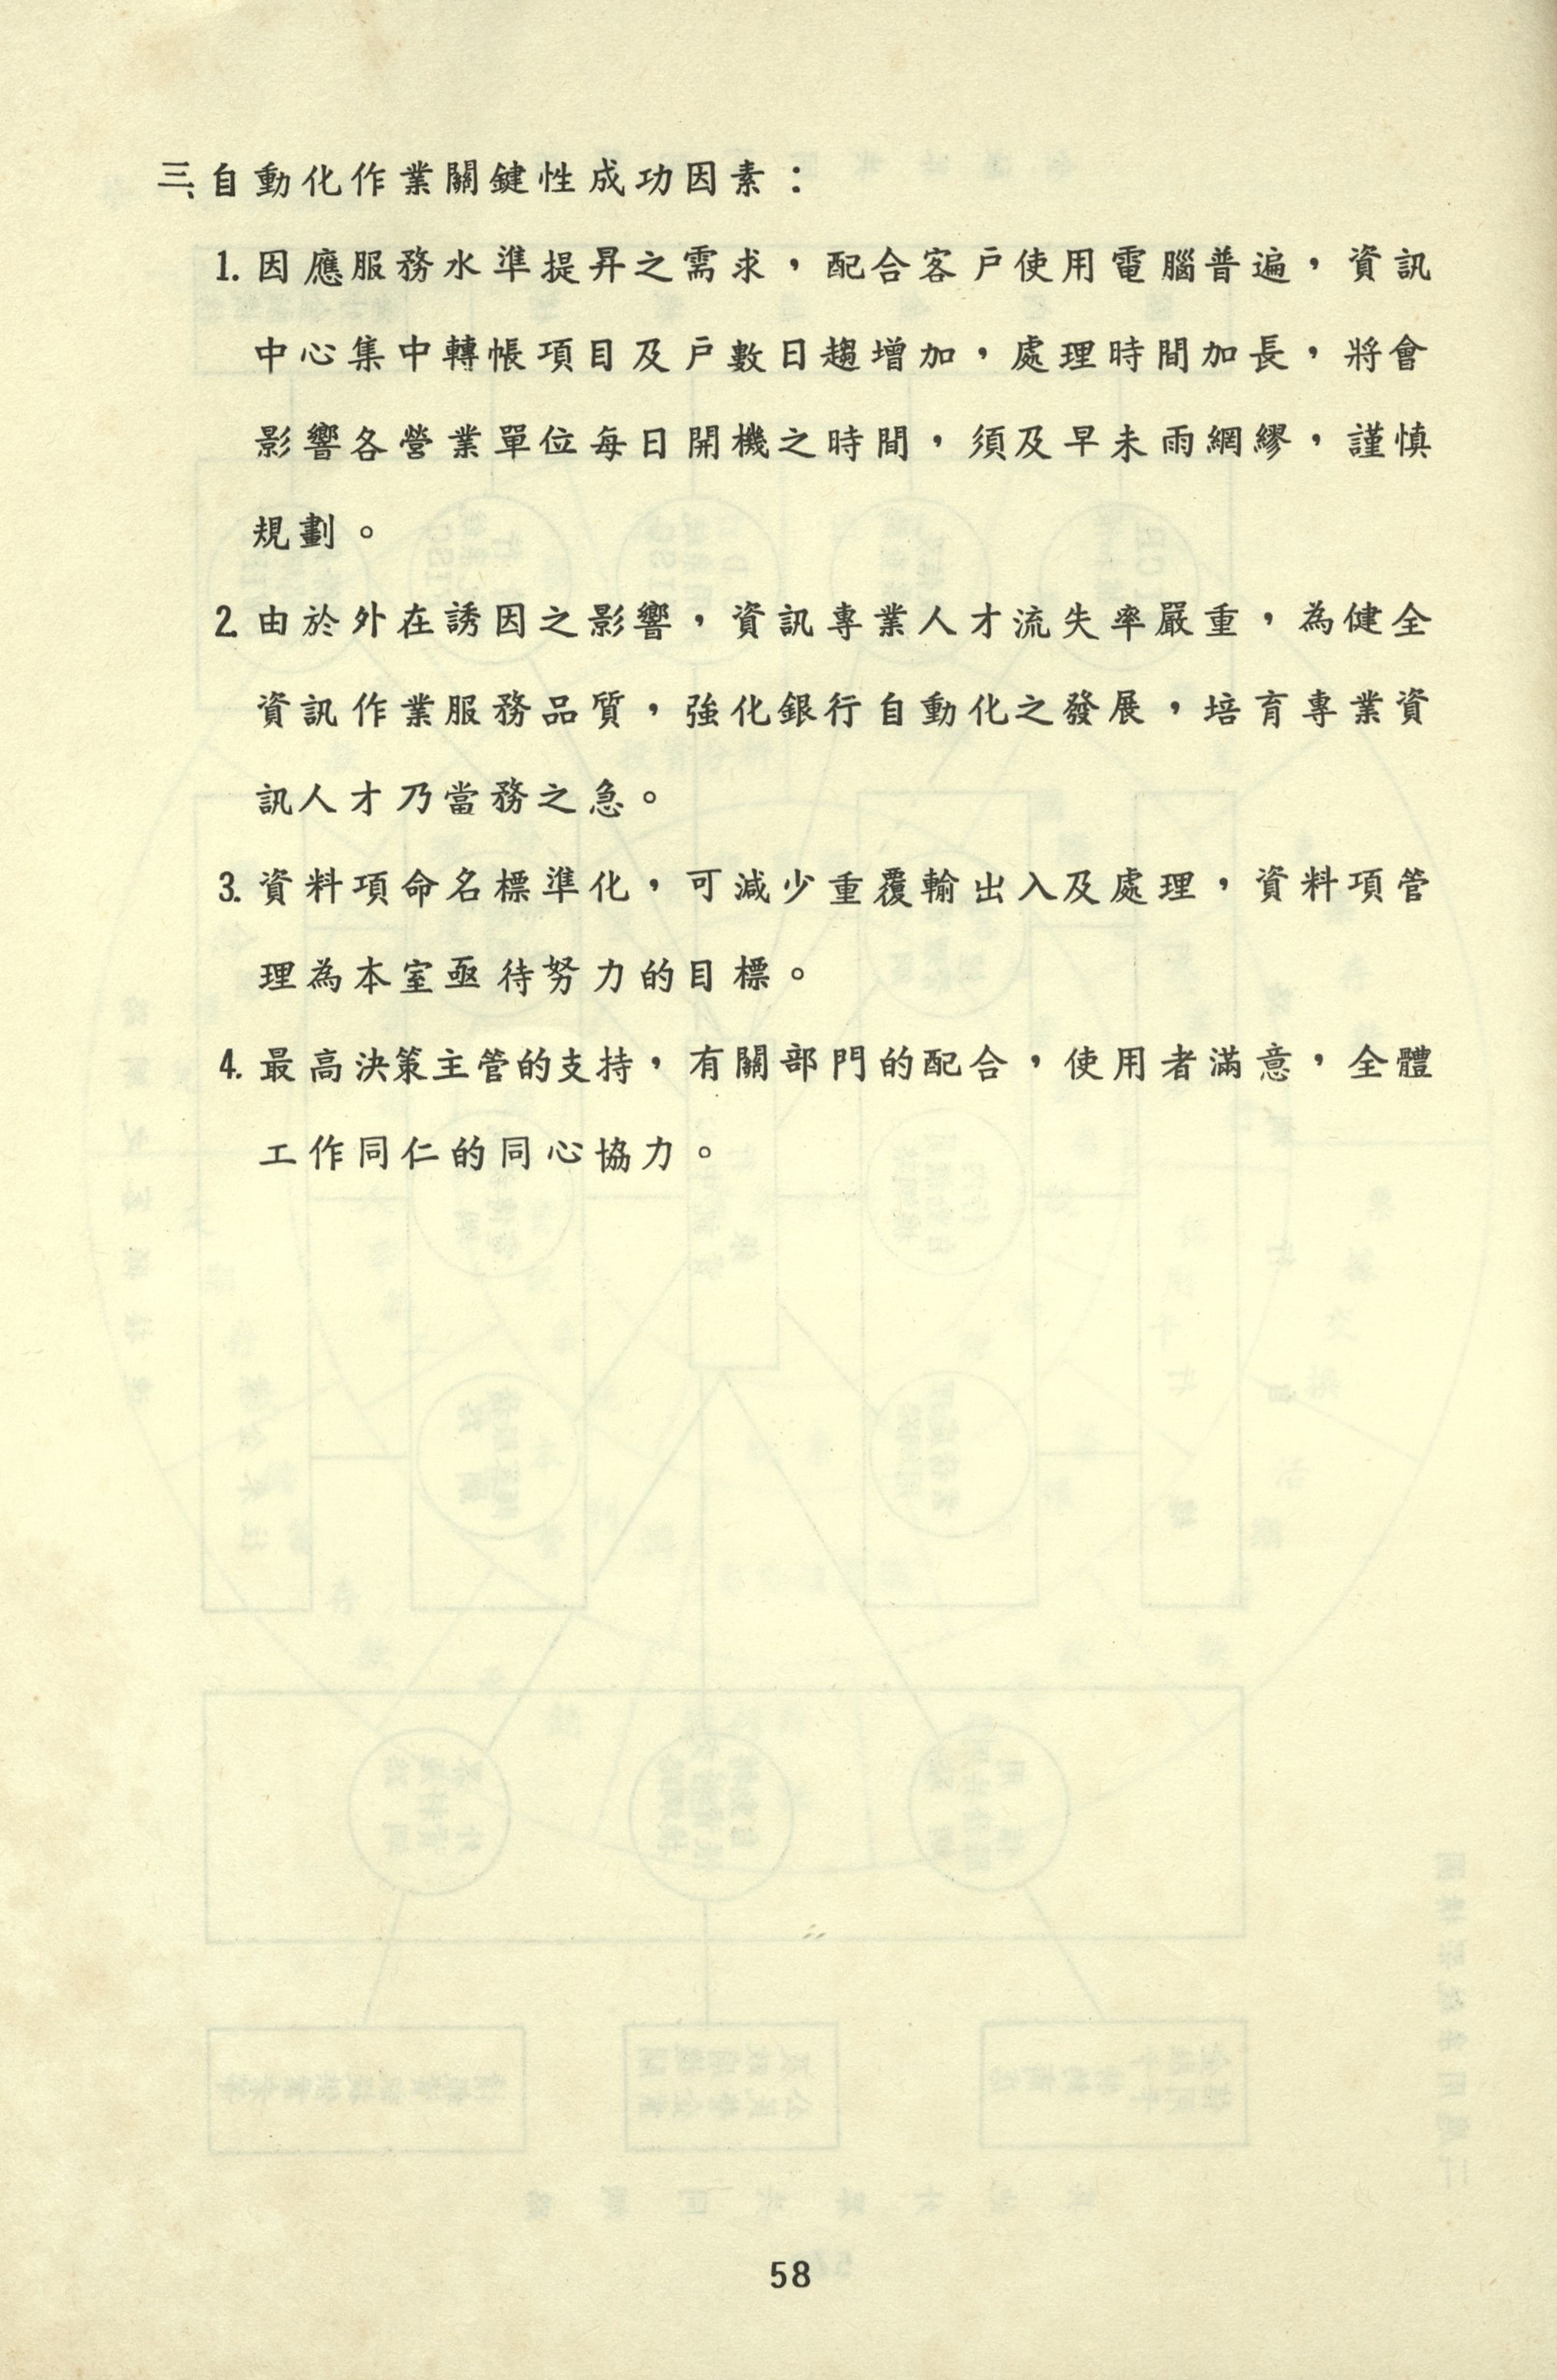 三、自動化作業關鍵性成功因素：
1. 因應服務水準提昇之需求，配合客戶使用電腦普遍，資訊
中心集中轉帳項目及戶數日趨增加，處理時間加長，將會
影響各營業單位每日開機之時間，須及早未雨綢繆，謹慎
規劃。
2. 由於外在誘因之影響，資訊專業人才流失率嚴重，為健全
資訊作業服務品質，強化銀行自動化之發展，培育專業資
訊人才乃當務之急。
3. 資料項命名標準化，可減少重覆輸出入及處理，資料項管
理為本室亟待努力的目標。
4. 最高決策主管的支持，有關部門的配合，使用者滿意，全體
工作同仁的同心協力。
58